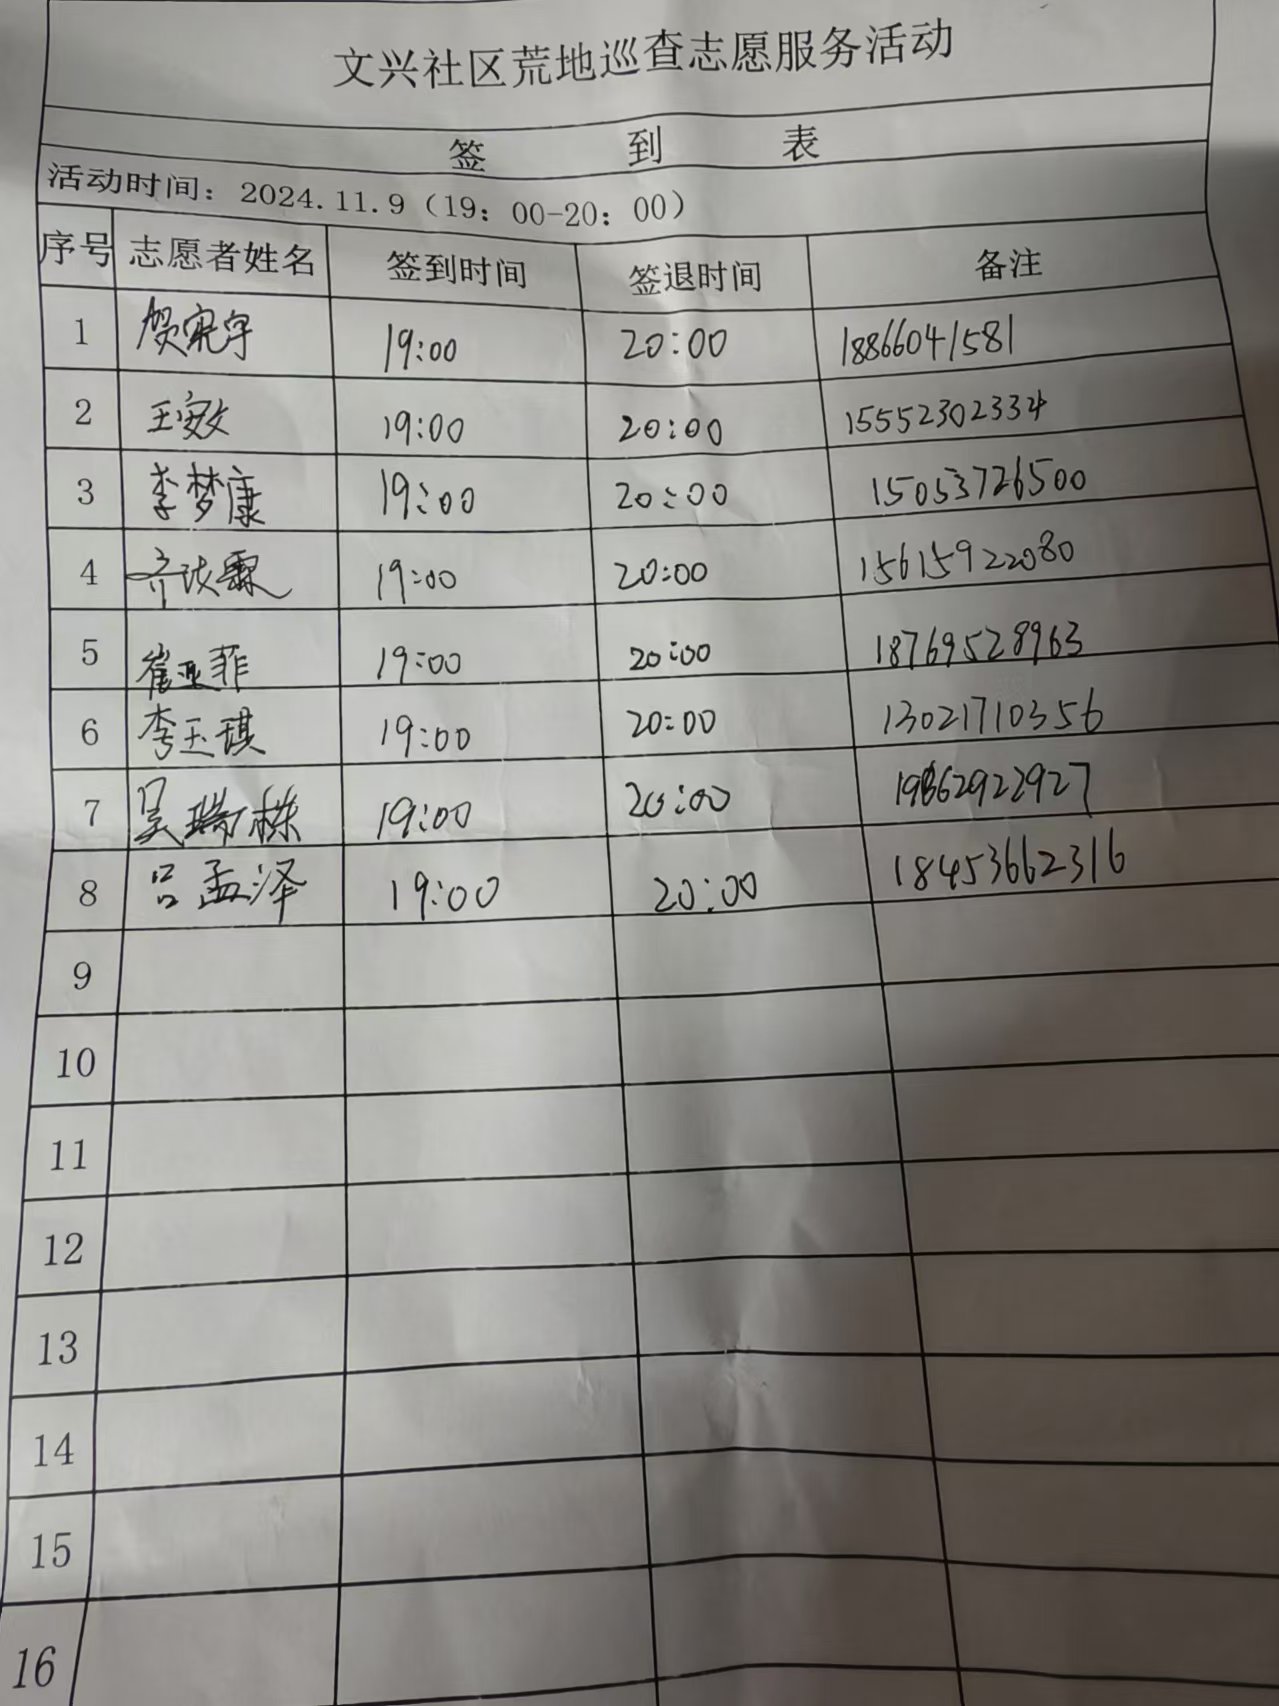 文兴社区荒地巡查志愿服务活动
签 到 表
活动时间：2024.11.9（19：00-20：00）
序号 志愿者姓名 签到时间 签退时间 备注
1 贺宪宇 19:00 20:00 18866041581
2 王 19:00 20:00 15552302334
3 李梦康 19:00 20:00 15053726500
4 齐 霖 19:00 20:00 15615922080
5 崔亚菲 19:00 20:00 18769528963
6 李玉琪 19:00 20:00 13021710356
7 吴瑞 19:00 20:00 19862922927
8 吕孟泽 19:00 20:00 18453662316
9
10
11
12
13
14
15
16